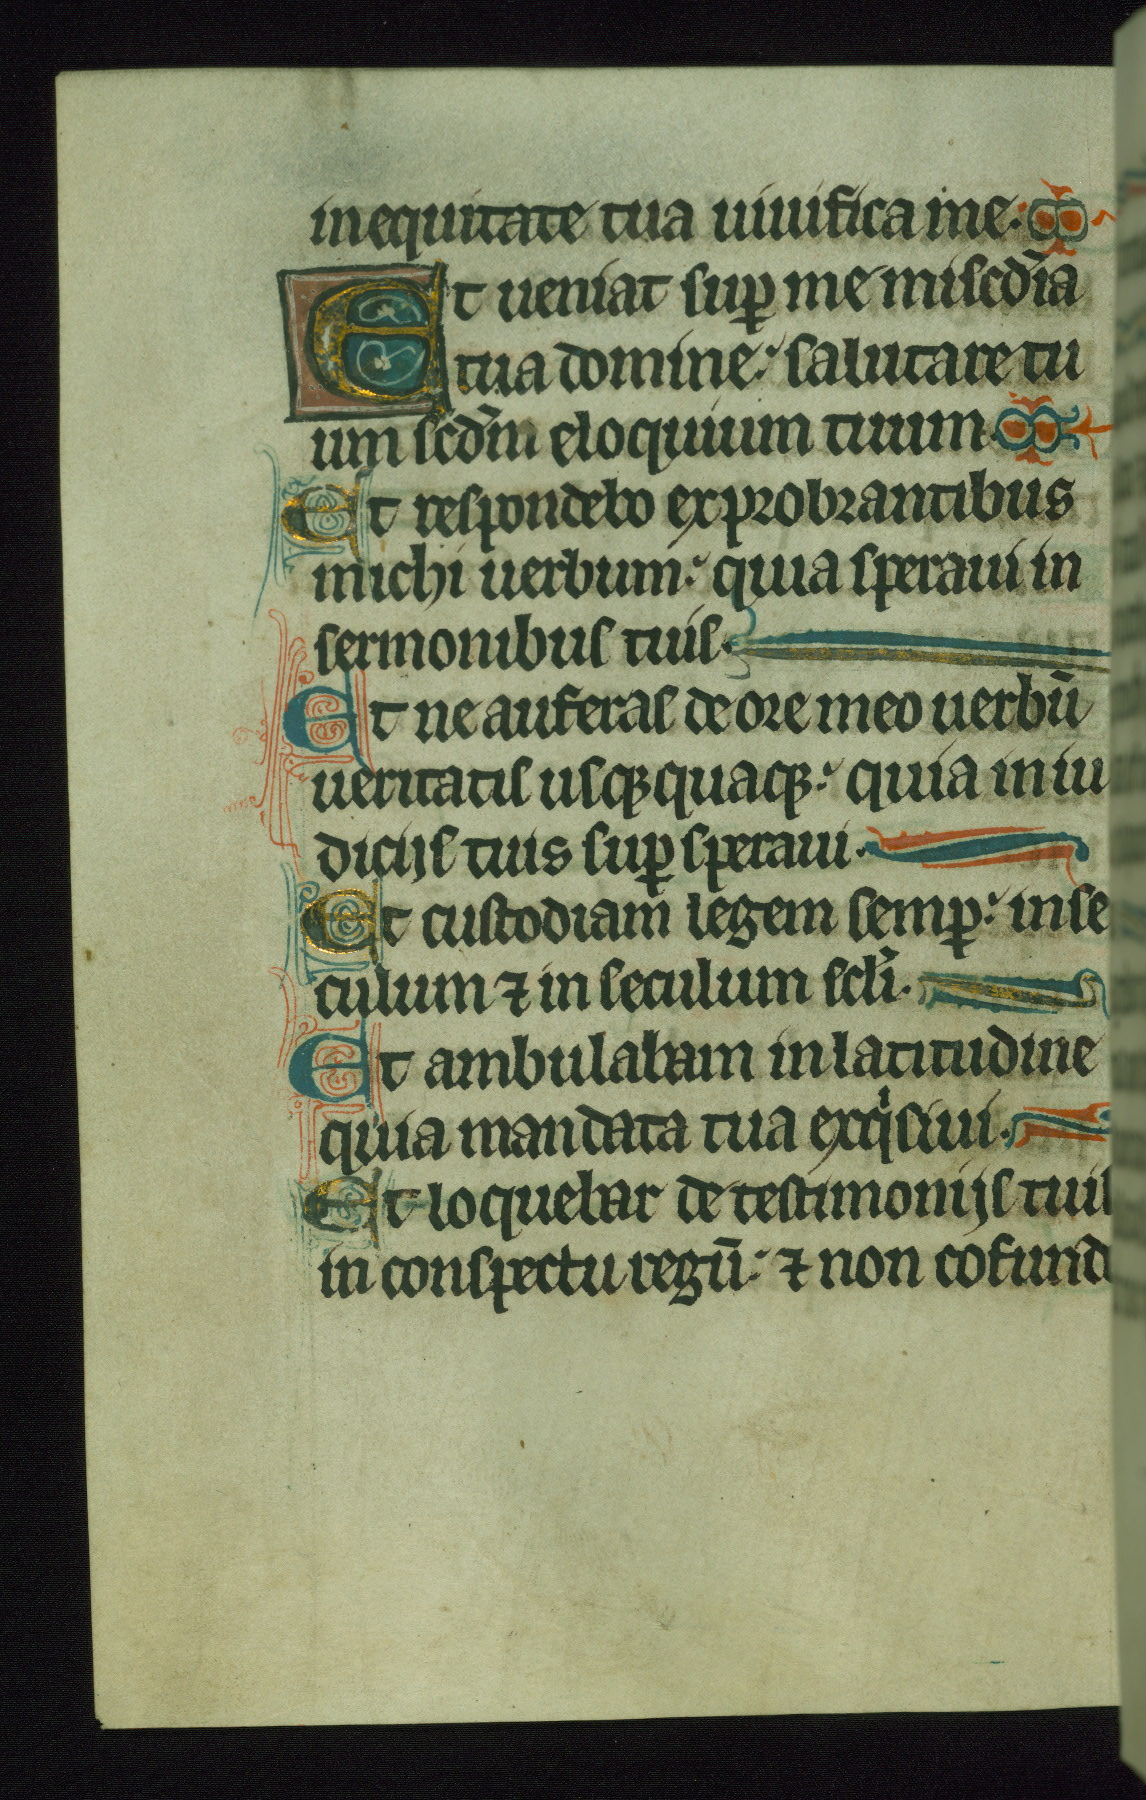 in equitate tua uiuifica me.
Et ueniat suꝑ me misc̄dia
tua domine: salutare tu
um scd̄m eloquium tuum.
Et respondebo exprobrantibus
michi uerbum: quia speraui in
sermonibus tuis.
Et ne auferas de ore meo uerbū
ueritatis usqꝫquaqꝫ: quia in iu
dicijs tuis suꝑsperaui.
Et custodiam legem semꝑ: in se
culum ⁊ in seculum scl̄i.
Et ambulabam in latitudine
quia mandata tua exqͥsiui.
Et loquebar de testimonijs tuis
in conspectu regū: ⁊ non cofund